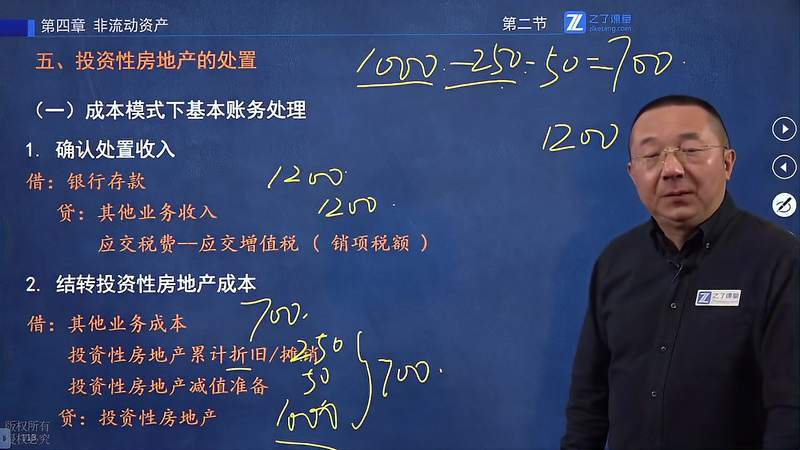 第四章 非流动资产
第二节
之了课堂
zlketang.com
五、投资性房地产的处置
1000 - 250 - 50 = 700
（一）成本模式下基本账务处理
1200
1. 确认处置收入
借：银行存款 1200
贷：其他业务收入 1200
应交税费—应交增值税（销项税额）
2. 结转投资性房地产成本
借：其他业务成本 700
投资性房地产累计折旧/摊销 250
投资性房地产减值准备 50
700
贷：投资性房地产 1000
之了课堂
版权所有